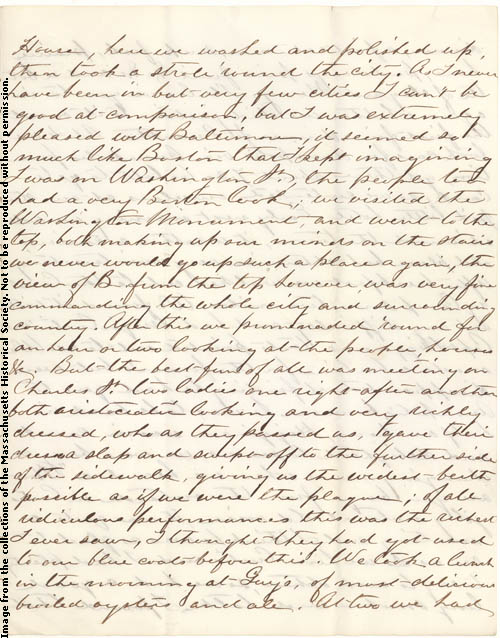 House, here we washed and polished up,
then took a stroll 'round the city. As I never
have been in but very few cities I can't be
good at comparison, but I was extremely
pleased with Baltimore, it seemed so
much like Boston that I kept imagining
I was on Washington St, the people too
had a very Boston look; we visited the
Washington Monument, and went to the
top, both making up our minds on the stairs
we never would go up such a place again, the
view of B. from the top however was very fine
commanding the whole city and surrounding
country. After this we promenaded 'round for
an hour or two looking at the people, houses
&c. But the best fun of all was meeting on
Charles St two ladies one right after another
both aristocratic looking and very richly
dressed, who as they passed us, gave their
dresses a slap and swept off to the further side
of the sidewalk, giving us the widest berth
possible as if we were the plague; of all
ridiculous performances this was the richest
I ever saw, I thought they had got used
to our blue coats before this. We took a lunch
in the morning at Guy's, of most delicious
broiled oysters and ale. At two we had
Image from the collections of the Massachusetts Historical Society. Not to be reproduced without permission.